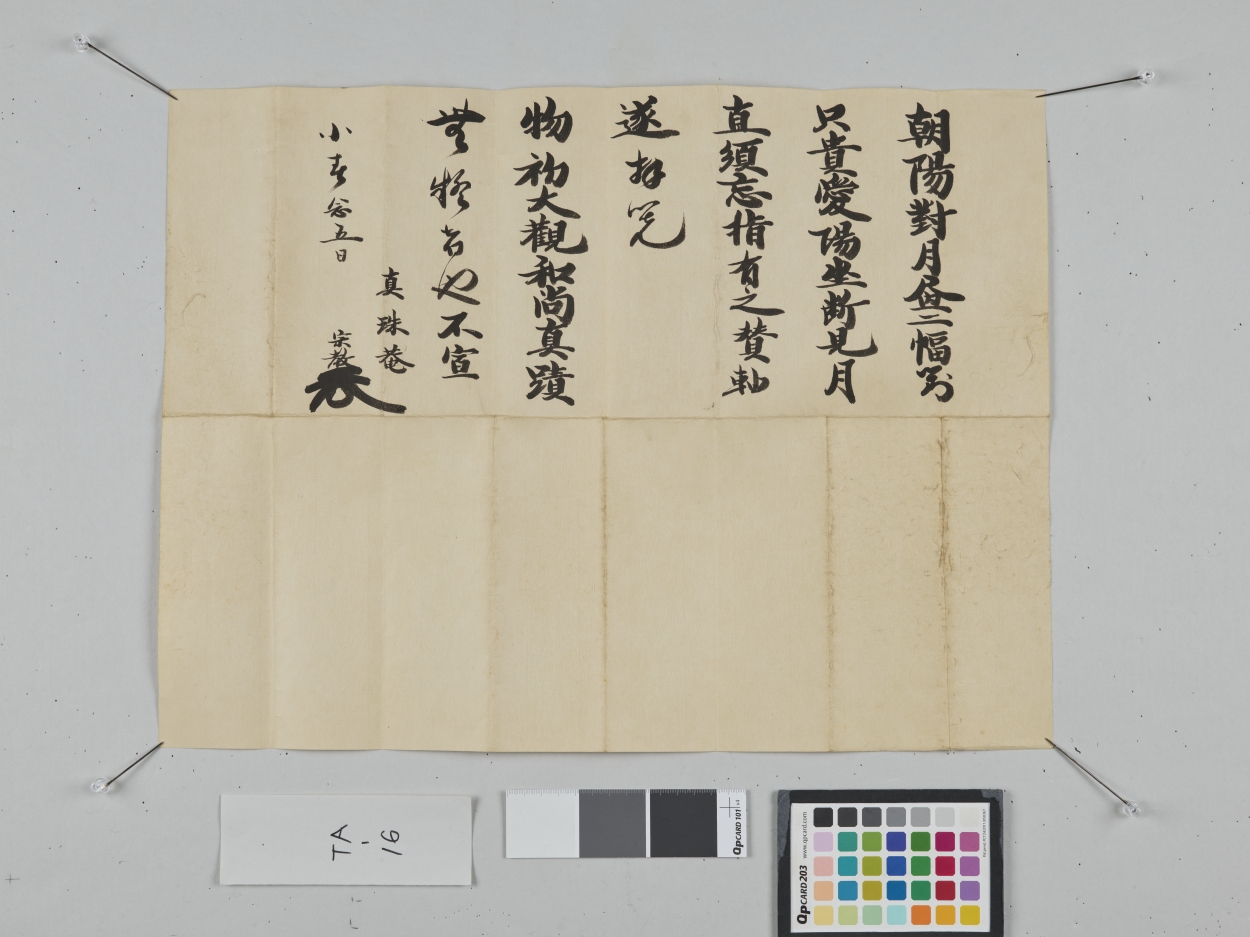 朝陽對月昼二幅對
只貴愛陽坐断見月
直須忘指有之賛軸
遂拝覧
物初大觀和尚真蹟
無疑者也不宣
真珠菴
小春念五日
宗
TA-16
QPCARD 101 v3
QPCARD 203
www.qpcard.com